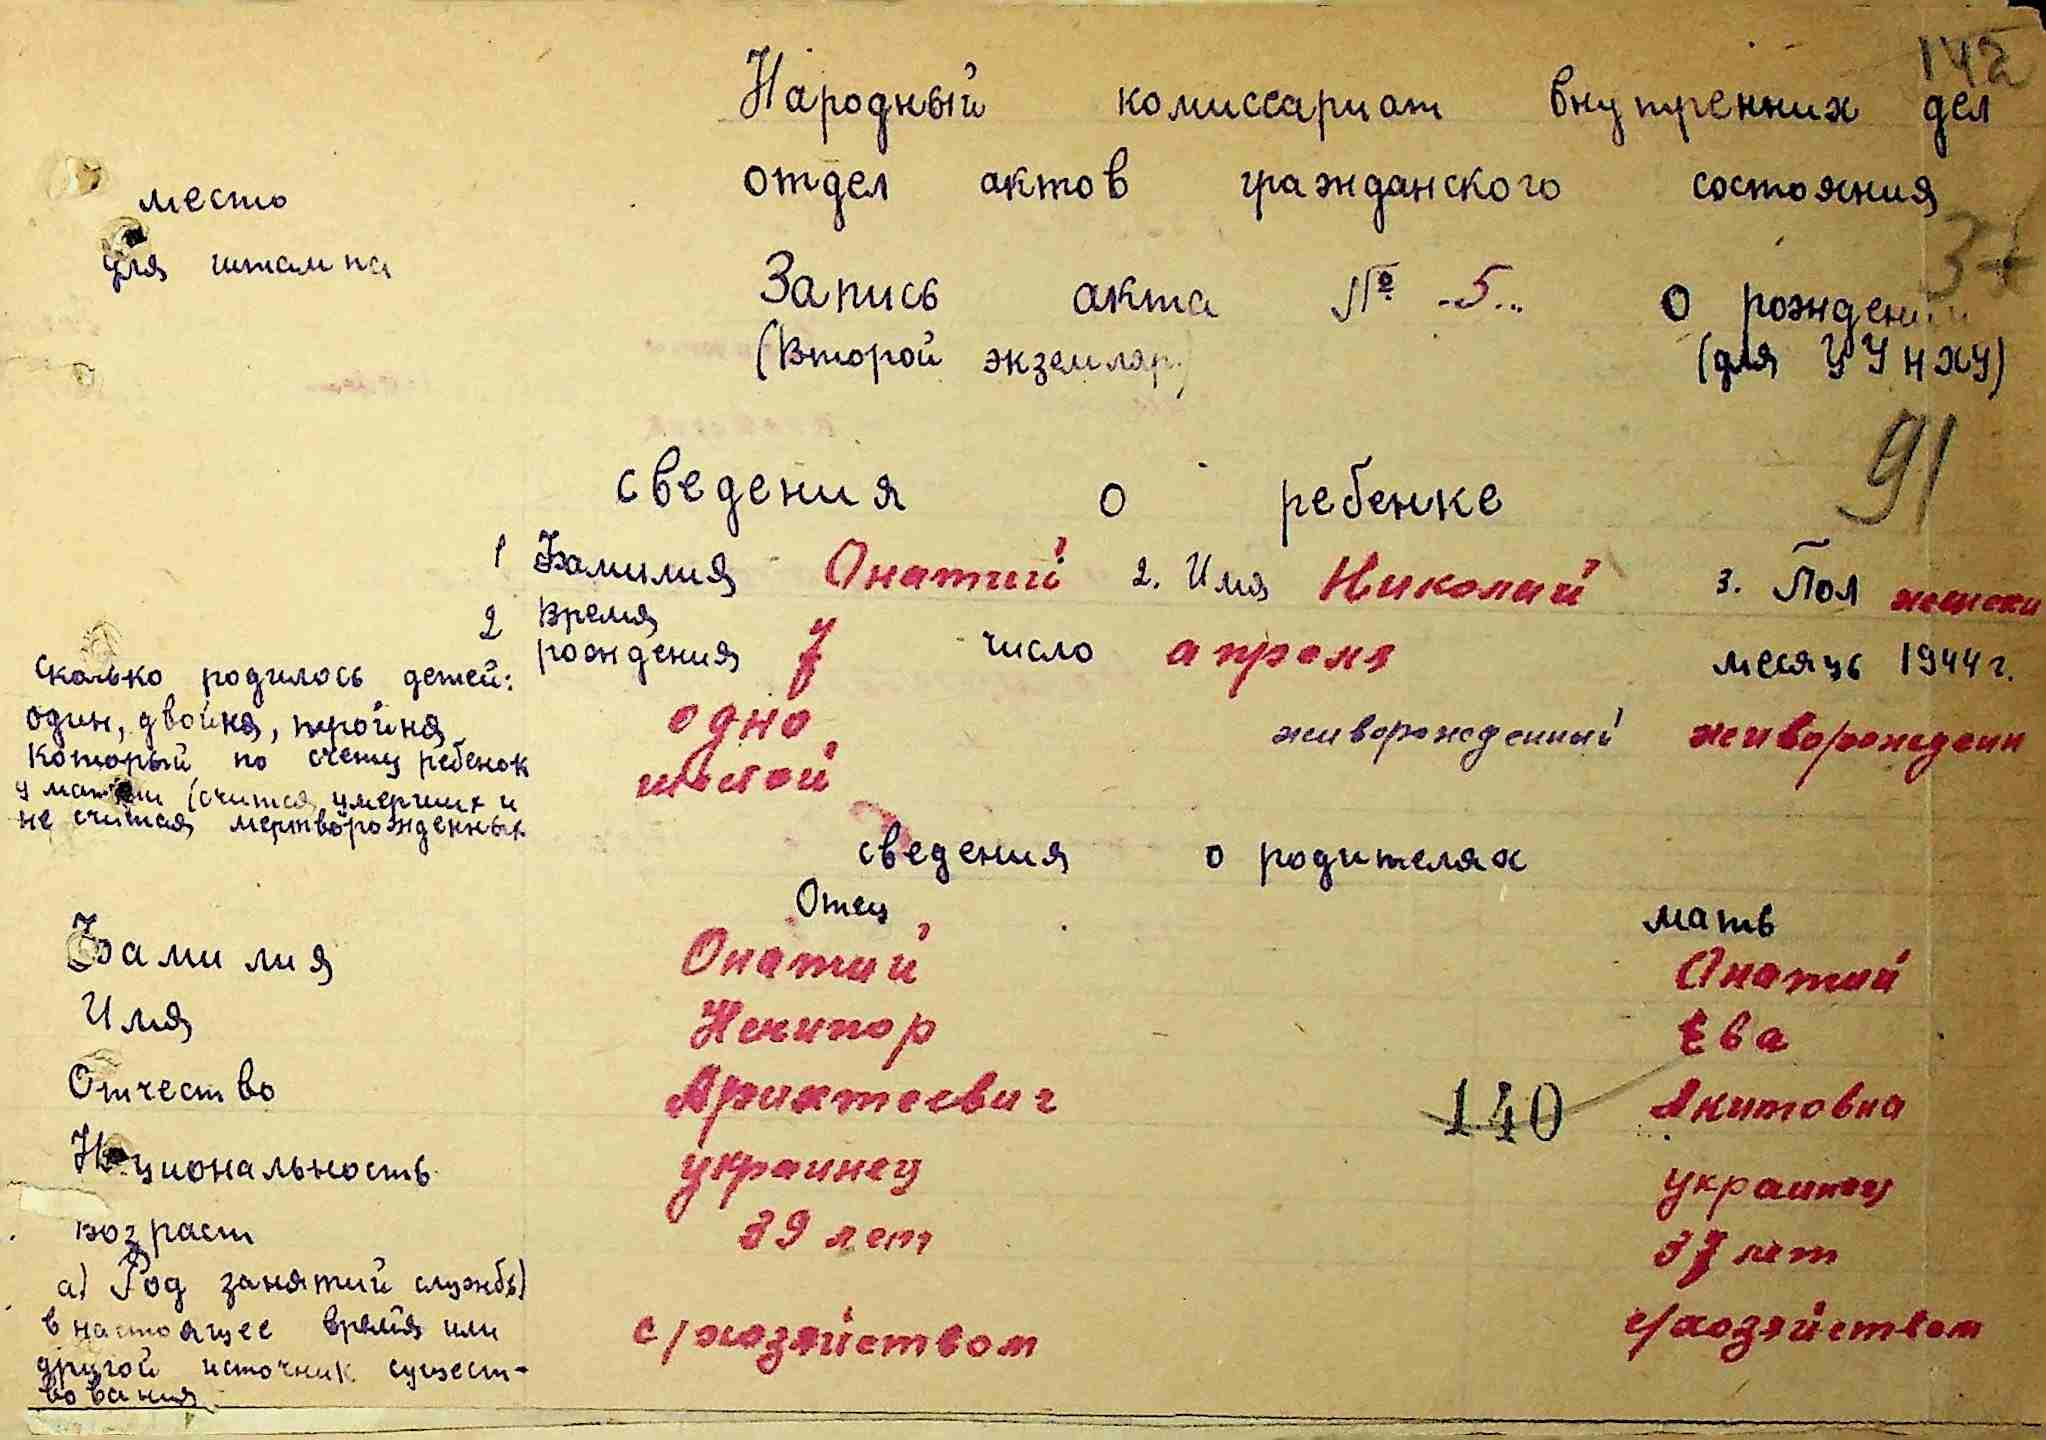 142
Народный комиссариат внутренних дел
отдел актов гражданского состояния
место
для штампа
Запись акта № 5 о рождении
(Второй экземпляр) (для УУНХУ)
91
сведения о ребенке
1 Фамилия Онатий 2. Имя Николай 3. Пол
2 Время
рождения 7 число апреля месяць 1944 г.
Сколько родилось детей:
один, двойня, тройня одно живорожденный живорожденн
Который по счету ребенок
у матери (считая умерших и
не считая мертворожденных
сведения о родителях
Отец мать
Фамилия Онатий Онатий
Имя Никипор Ева
Отчество Якитовна
140
Национальность украинец украинец
возраст 39 лет 37 лет
а) Род занятий службы)
в настоящее время или с/хозяйством с/хозяйством
другой источник сущест-
вования